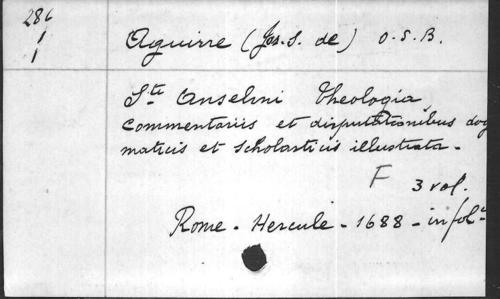 286
1
1
Aguirre (Jos. S. de) O.S.B.
Sti Anselmi Theologia
Commentariis et disputationibus dog
maticis et scholasticis illustrata -
F 3 vol.
Rome - Hercule - 1688 - in folo